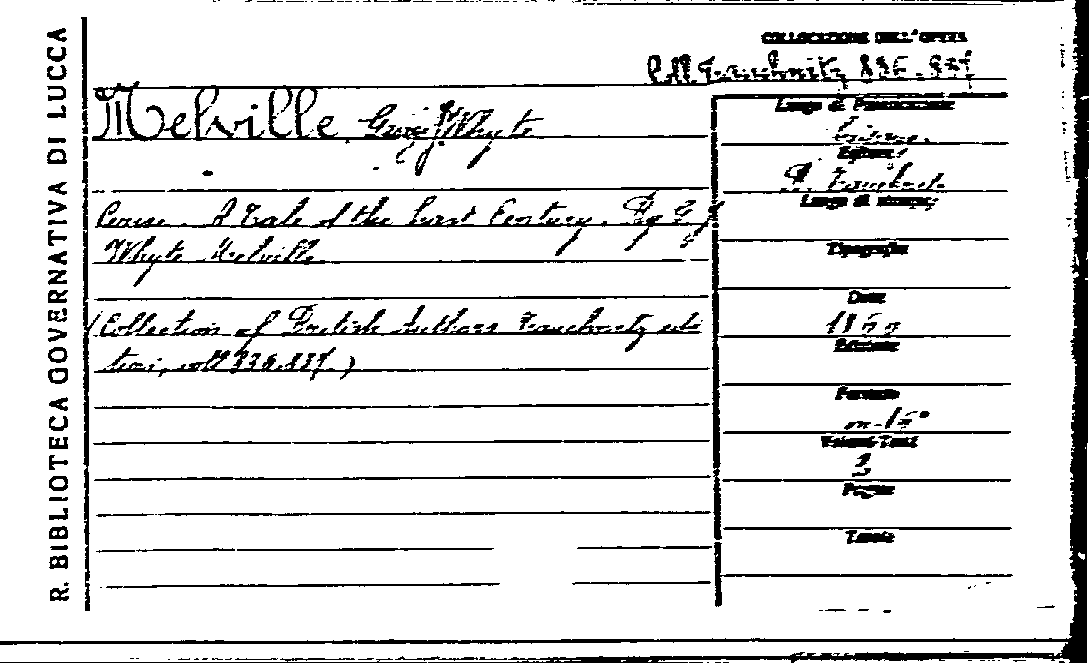 R. BIBLIOTECA GOVERNATIVA DI LUCCA
COLLOCAZIONE DELL'OPERA
Tauchnitz 836.837
Melville Whyte
Cerise. A Tale of the Last Century. By G. J.
Whyte Melville
(Collection of British Authors Tauchnitz edi
tion, vol. 836.837.)
Luogo di Pubblicazione
Editore
B. Tauchnitz
Luogo di stampa
Tipografia
Data
Edizione
Formato
in-16°
Volumi-Tomi
Pagine
Tavole